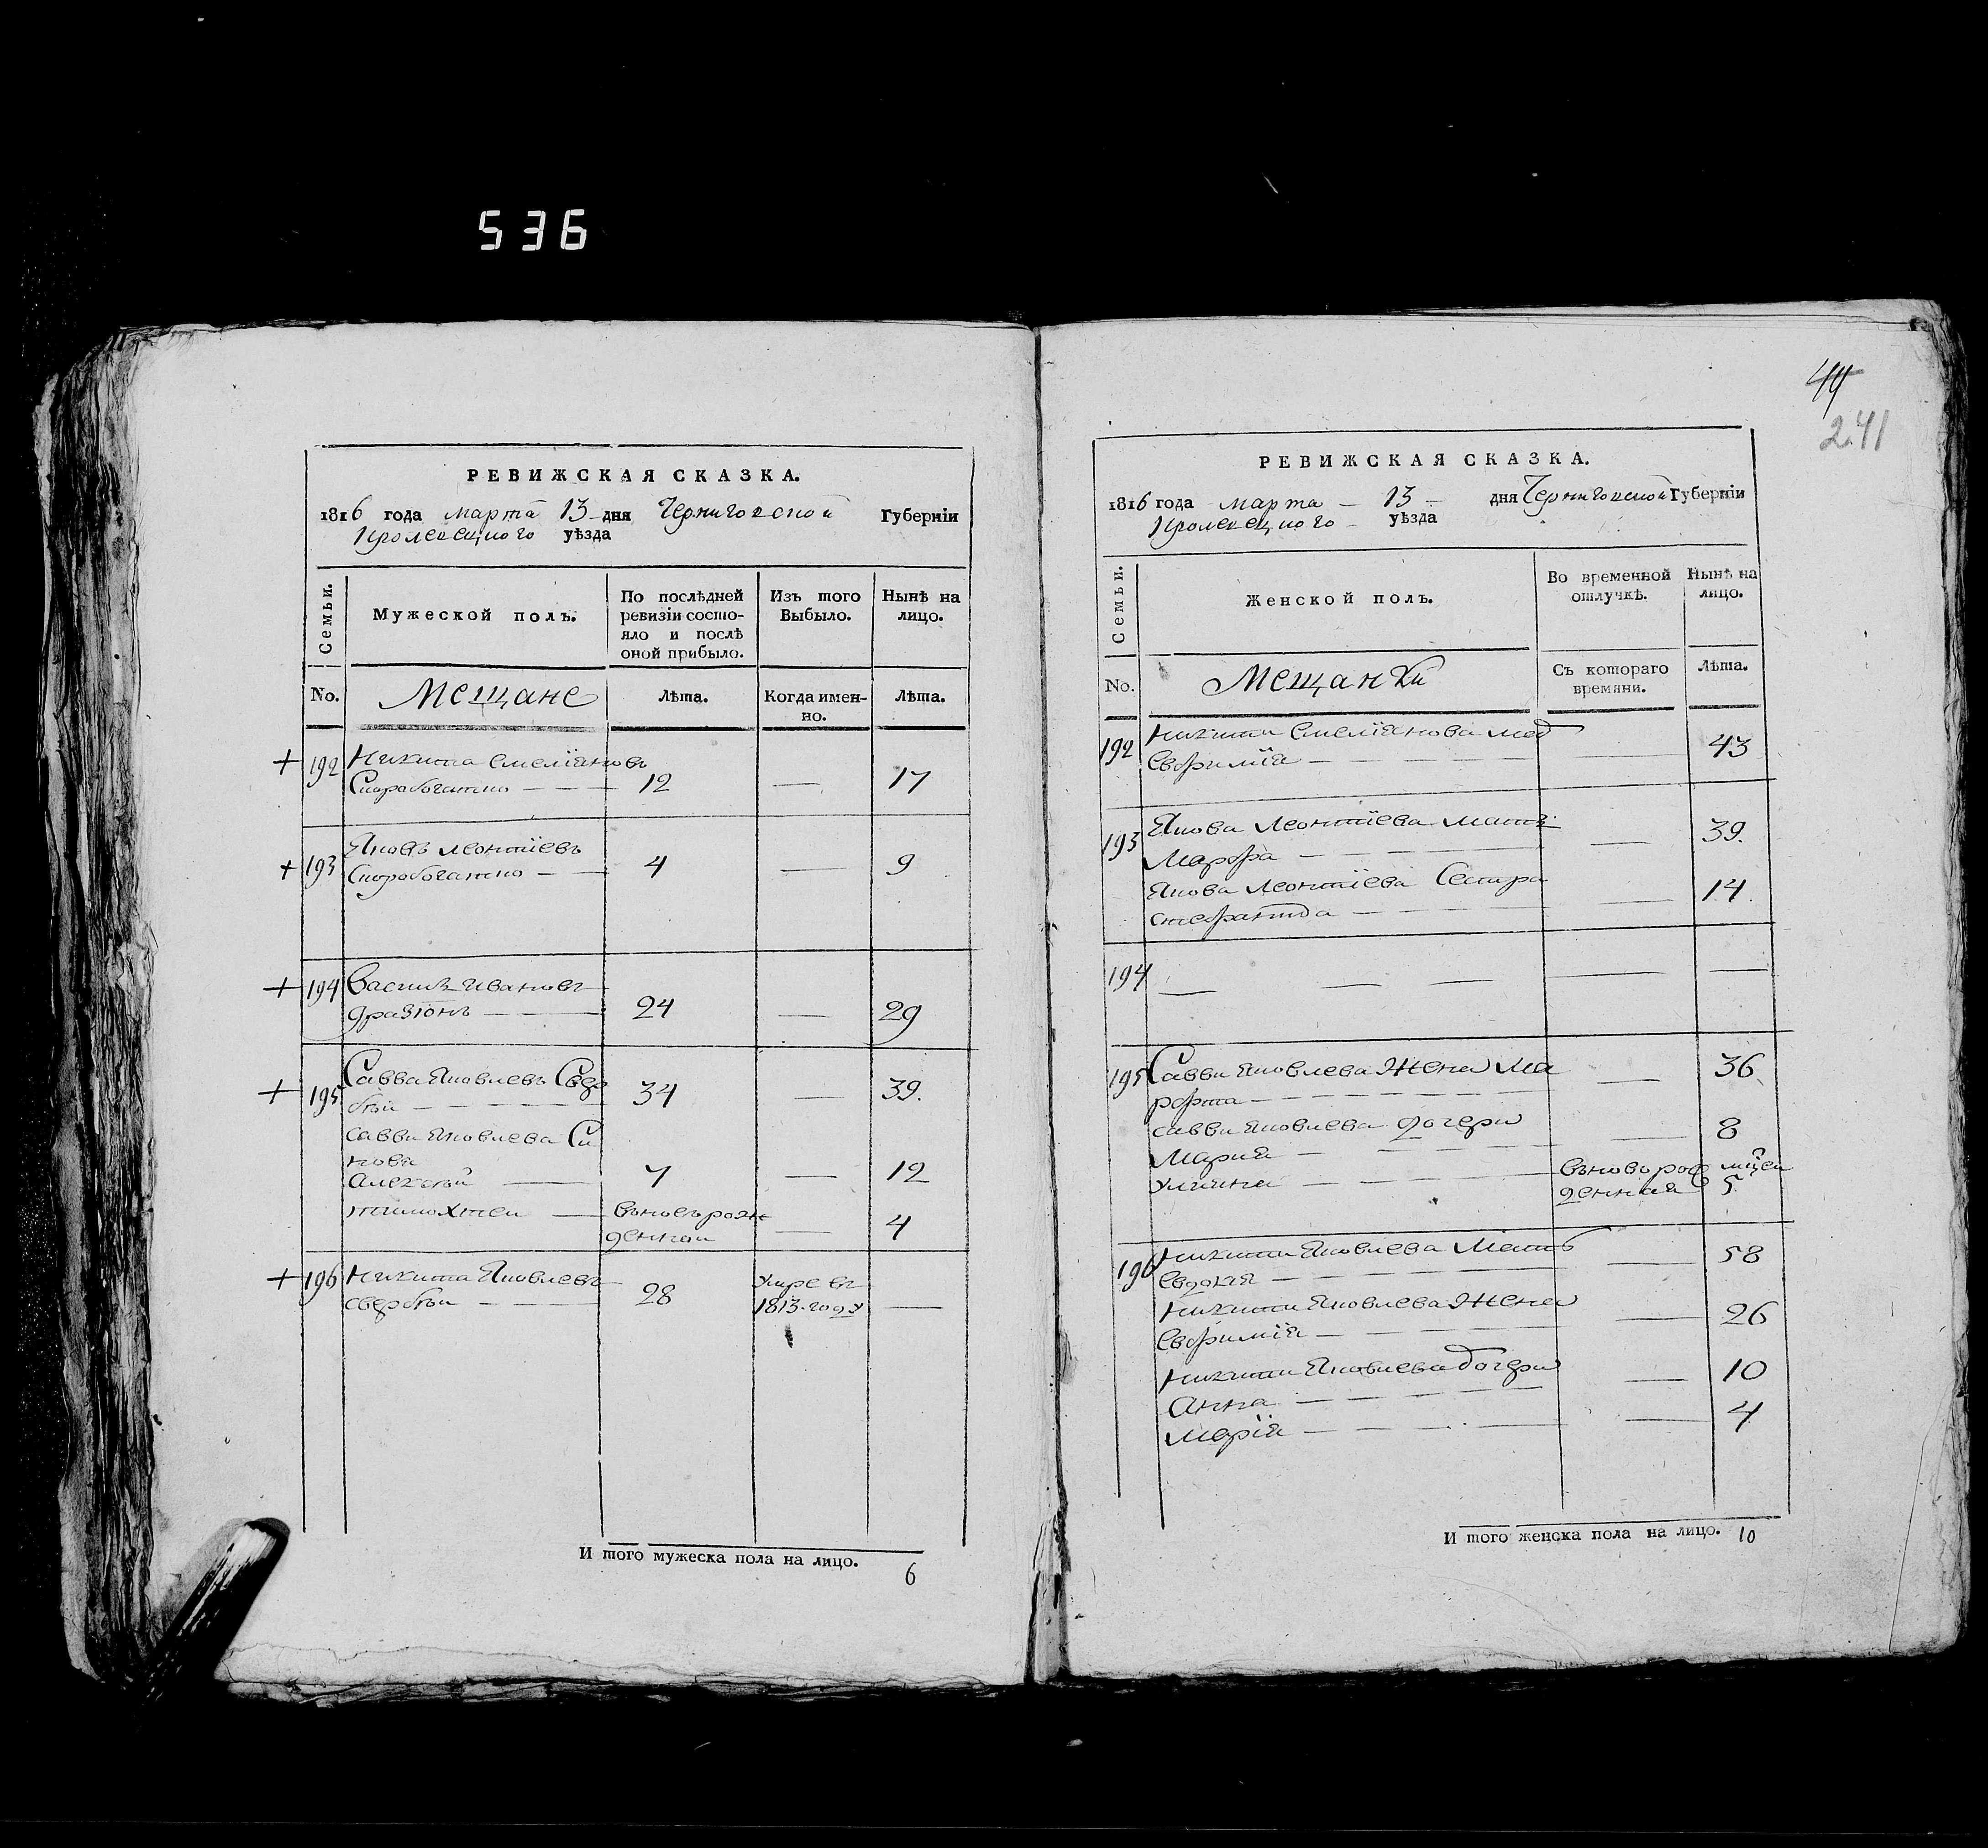 536
РЕВИЖСКАЯ СКАЗКА.
1816 года марта 13 дня Черниговской Губерніи
Кролевецкого уѣзда
Семьи.
Мужеской полъ.
По послѣдней ревизіи состо-
яло и послѣ
оной прибыло.
Изъ того
Выбыло.
Нынѣ на
лицо.
No.
Мещане
Лѣта.
Когда имен-
но.
Лѣта.
+ 192 Никита Емеліяновъ
Скоробогатко — — 12 — 17
+ 193 Яковъ Леонтіевъ
Скоробогатко — — 4 — 9
+ 194 Василь Ивановъ
— 24 — 29
+ 195 Савва Яковлевъ Свер
бѣй — — — 34 — 39.
Савви Яковлева Си
нови
Алексѣй — 7 — 12
Тимохтей — вьновьрож
денной — 4
+ 196 Никита Яковлевъ
Свербѣй — — 28 умре въ
1813. году —
И того мужеска пола на лицо. 6
44
241
РЕВИЖСКАЯ СКАЗКА.
1816 года марта — 13 — дня Черниговской Губерніи
Кролевецкого — уѣзда
Семьи.
Женской полъ.
Во временной
отлучкѣ.
Нынѣ на
лицо.
No.
Мещанки
Съ котораго
времяни.
Лѣта.
192 Никити Емеліянова мат
Евфимія — — — — — 43
193 Якова Леонтіева мать
Марфа — — — — 39.
Якова Леонтіева Сестра
— — — — 14.
194 — — — — —
195 Савви Яковлева Жена Ма
рфта — — — — — 36
Савви Яковлева дочери
Марія — — — — 8
Улияна — — — — вьновърож мѣсеи
денная 5
196 Никити Яковлева Мать
Евдокия — — — — 58
Никити Яковлева Жена
Евфимія — — — — 26
Никити Яковлева дочери
Анна — — — — 10
Марія — — — — 4
И того женска пола на лицо. 10